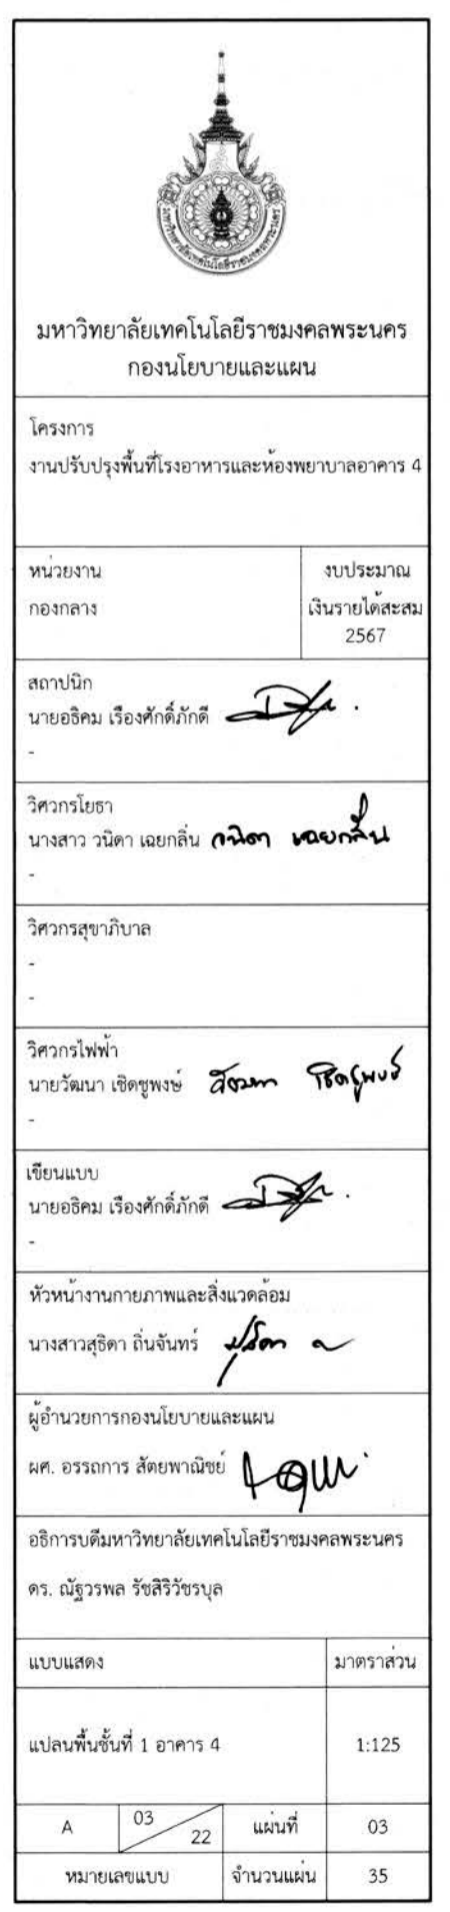 มหาวิทยาลัยเทคโนโลยีราชมงคลพระนคร
มหาวิทยาลัยเทคโนโลยีราชมงคลพระนคร
กองนโยบายและแผน
โครงการ
งานปรับปรุงพื้นที่โรงอาหารและห้องพยาบาลอาคาร 4
หน่วยงาน
กองกลาง
งบประมาณ
เงินรายได้สะสม
2567
สถาปนิก
นายอธิคม เรืองศักดิ์ภักดี
-
วิศวกรโยธา
นางสาว วนิดา เฉยกลิ่น วนิดา เฉยกลิ่น
-
วิศวกรสุขาภิบาล
-
-
วิศวกรไฟฟ้า
นายวัฒนา เชิดชูพงษ์ วัฒนา เชิดชูพงษ์
-
เขียนแบบ
นายอธิคม เรืองศักดิ์ภักดี
-
หัวหน้างานกายภาพและสิ่งแวดล้อม
นางสาวสุธิดา ถิ่นจันทร์
ผู้อำนวยการกองนโยบายและแผน
ผศ. อรรถการ สัตยพาณิชย์
อธิการบดีมหาวิทยาลัยเทคโนโลยีราชมงคลพระนคร
ดร. ณัฐวรพล รัชสิริวัชรบุล
แบบแสดง มาตราส่วน
แปลนพื้นชั้นที่ 1 อาคาร 4 1:125
A 03/22 แผ่นที่ 03
หมายเลขแบบ จำนวนแผ่น 35